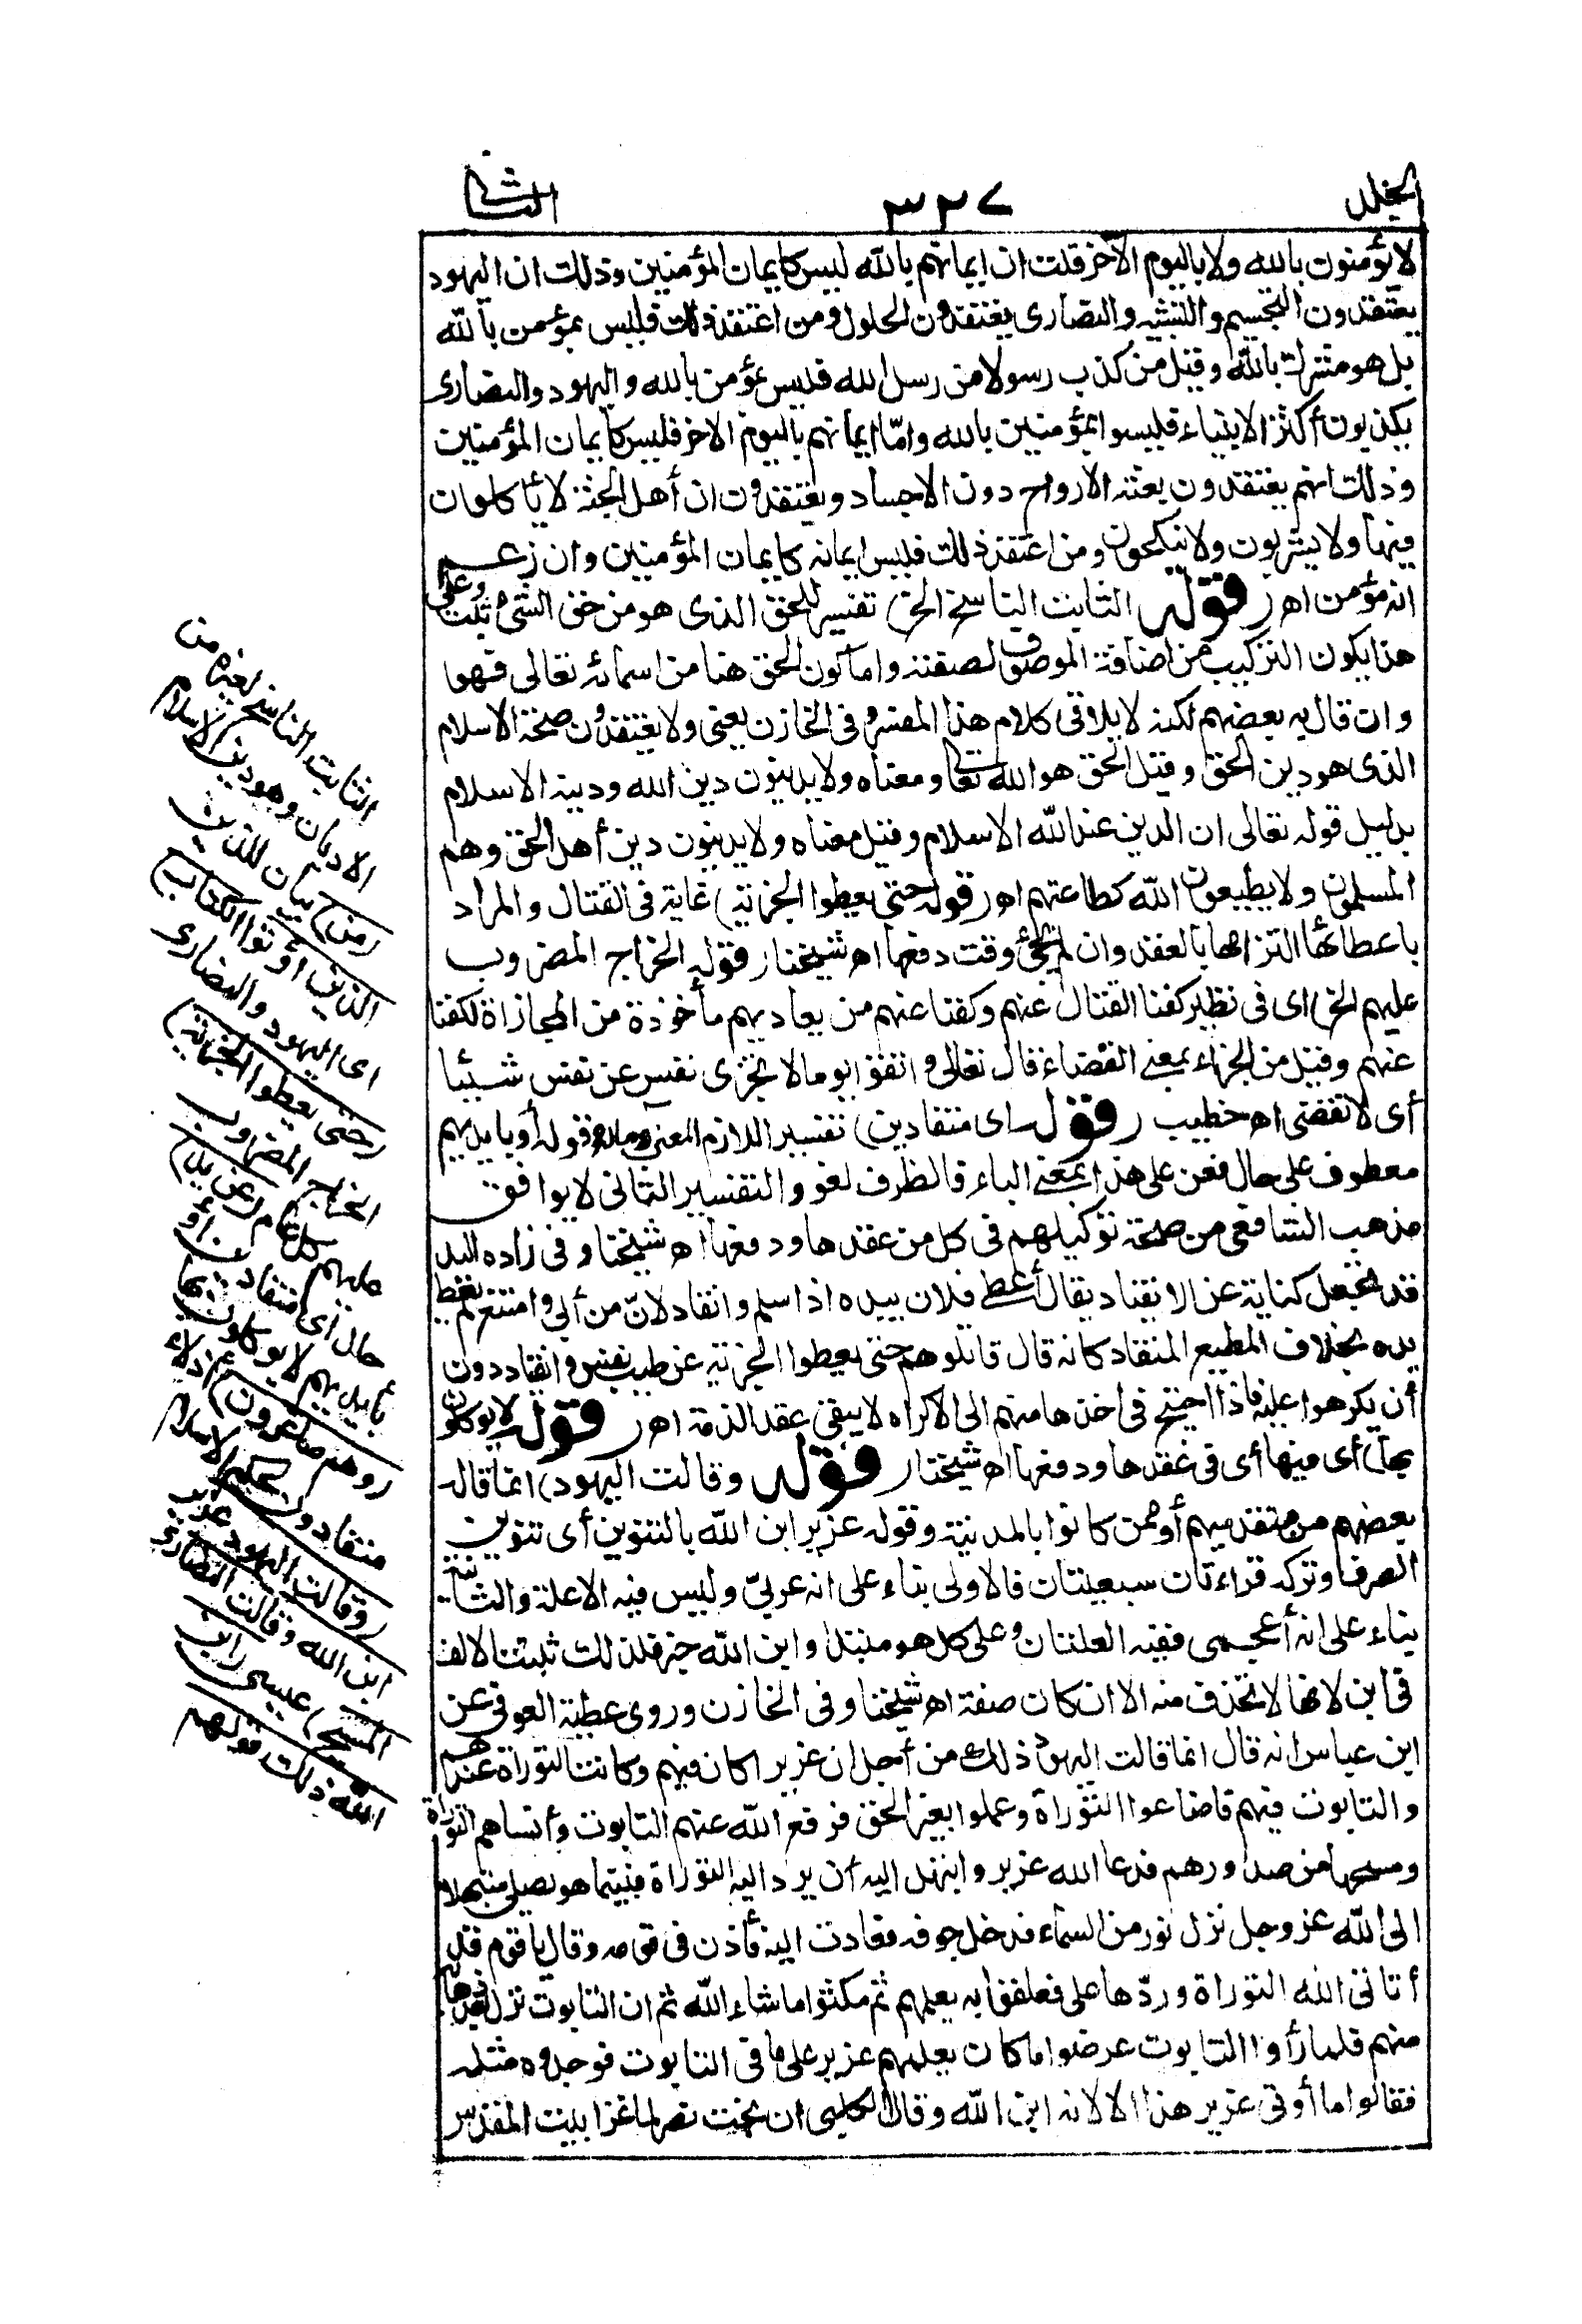 المجلد
٣٢٧
الثانى
لا يؤمنون بالله ولا باليوم الآخر قلت ان ايمانهم بالله ليس كايمان المؤمنين وذلك ان اليهود
يعتقدون التجسيم والتشبيه والنصارى يعتقدون الحلول ومن اعتقد ذلك فليس بمؤمن بالله
بل هو مشرك بالله وقيل من كذب رسولا من رسل الله فليس بمؤمن بالله واليهود والنصارى
يكذبون أكثر الانبياء فليسوا بمؤمنين بالله وامّا ايمانهم باليوم الاخر فليس كايمان المؤمنين
وذلك انهم يعتقدون بعثة الارواح دون الاجساد ويعتقدون ان أهل الجنة لا يأكلون
فيها ولا يشربون ولا ينكحون ومن اعتقد ذلك فليس ايمانه كايمان المؤمنين وان زعم
انه مؤمن اهـ (قوله الثابت الناسخ الخ) تفسير للحق الذى هو من حق الشئ ثبت وعلى
هذا يكون التركيب من اضافة الموصوف لصفته واما كون الحق هنا من اسمائه تعالى فهو
وان قال به بعضهم لكنه لا يلاقى كلام هذا المفسر وفى الخازن يعنى ولا يعتقدون صحة الاسلام
الذى هو دين الحق وقيل الحق هو الله تعالى ومعناه ولا يدينون دين الله ودينه الاسلام
بدليل قوله تعالى ان الدين عند الله الاسلام وقيل معناه ولا يدينون دين أهل الحق وهم
المسلمون ولا يطيعون الله كطاعتهم اهـ (قوله حتى يعطوا الجزية) غاية فى القتال والمراد
باعطائها التزامها بالعقد وان لم يجئ وقت دفعها اهـ شيخنا (قوله الخراج المضروب
عليهم الخ) اى فى نظير كفنا القتال عنهم وكفنا عنهم من يعاديهم مأخوذة من المجازاة لكفنا
عنهم وقيل من الجزاء بمعنى القضاء قال تعالى واتقوا يوما لا تجزى نفس عن نفس شيئا
أى لا تقضى اهـ خطيب (قوله اى منقادين) تفسير اللازم المعنى وقوله أو بايديهم
معطوف على حال فعن على هذا بمعنى الباء فالظرف لغو والتفسير الثانى لا يوافق
مذهب الشافعى من صحة توكيلهم فى كل من عقدها ودفعها اهـ شيخنا وفى زاده اليد
قد تجعل كناية عن الانقياد يقال أعطى فلان بيده اذا سلم وانقاد لانّ من أبى وامتنع لم يعط
يده بخلاف المطيع المنقاد كانه قال قاتلوهم حتى يعطوا الجزية عن طيب نفس وانقياد دون
أن يكرهوا عليه فاذا احتيج فى اخذها منهم الى الاكراه لا يبقى عقد الذمة اهـ (قوله لا يوكلون
بها) أى فيها أى فى عقدها ودفعها اهـ شيخنا (قوله وقالت اليهود) انما قاله
بعضهم من متقدميهم أو ممن كانوا بالمدينة وقوله عزير ابن الله بالتنوين أى تنوين
الصرف وتركه قراءتان سبعيتان فالاولى بناء على انه عربىّ وليس فيه الا علة والثانية
بناء على انه أعجمى ففيه العلتان وعلى كل هو مبتدا وابن الله خبر فلذلك ثبتت الالف
فى ابن لانها لا تحذف منه الا ان كان صفة اهـ شيخنا وفى الخازن وروى عطية العوفى عن
ابن عباس انه قال انما قالت اليهود ذلك من أجل ان عزيرا كان فيهم وكانت التوراة عندهم
والتابوت فيهم فاضاعوا التوراة وعملوا بغير الحق فرفع الله عنهم التابوت وأنساهم التوراة
ومسحها من صدورهم فدعا الله عزير وابتهل اليه أن يرد اليه التوراة فبينما هو يصلى مبتهلا
الى الله عز وجل نزل نور من السماء فدخل جوفه فعادت اليه فأذن فى قومه وقال يا قوم قد
أتانى الله التوراة وردّها على فعلقوا به يعلمهم ثم مكثوا ما شاء الله ثم ان التابوت نزل بعد ذهابه
منهم فلما رأوا التابوت عرضوا ما كان يعلمهم عزير على ما فى التابوت فوجدوه مثله
فقالوا ما أوتى عزير هذا الا لانه ابن الله وقال الكلبى ان بخت نصر لما غزا بيت المقدس
الثابت الناسخ لغيره من
الاديان وهو دين الاسلام
(من) بيان للذين
الذين أوتوا الكتاب)
اى اليهود والنصارى
(حتى يعطوا الجزية)
الخراج المضروب
عليهم كل عام (عن يد)
حال أى منقادين أو
بأيديهم لا يوكلون بها
(وهم صاغرون) أذلاء
منقادون لحكم الاسلام
(وقالت اليهود عزير
ابن الله وقالت النصارى
المسيح) عيسى (ابن
الله ذلك قولهم